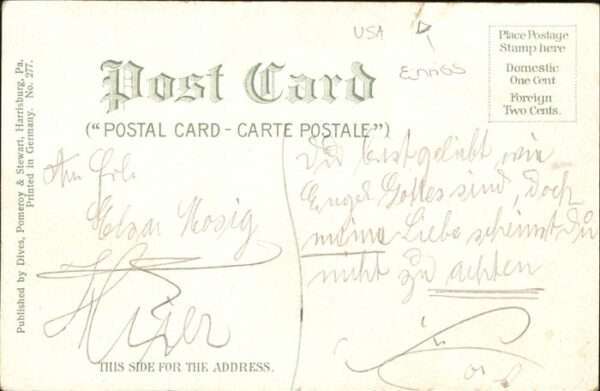 USA
ENNGS
Place Postage
Stamp here
Domestic
One Cent
Foreign
Two Cents.
Post Card
("POSTAL CARD - CARTE POSTALE")
Published by Dives, Pomeroy & Stewart, Harrisburg, Pa.
Printed in Germany. No. 277.
An Frl.
Elsa Mosig
Hier
Du bist geliebt wie
Engel Gottes sind, doch
meine Liebe scheinst Du
nicht zu achten
THIS SIDE FOR THE ADDRESS.